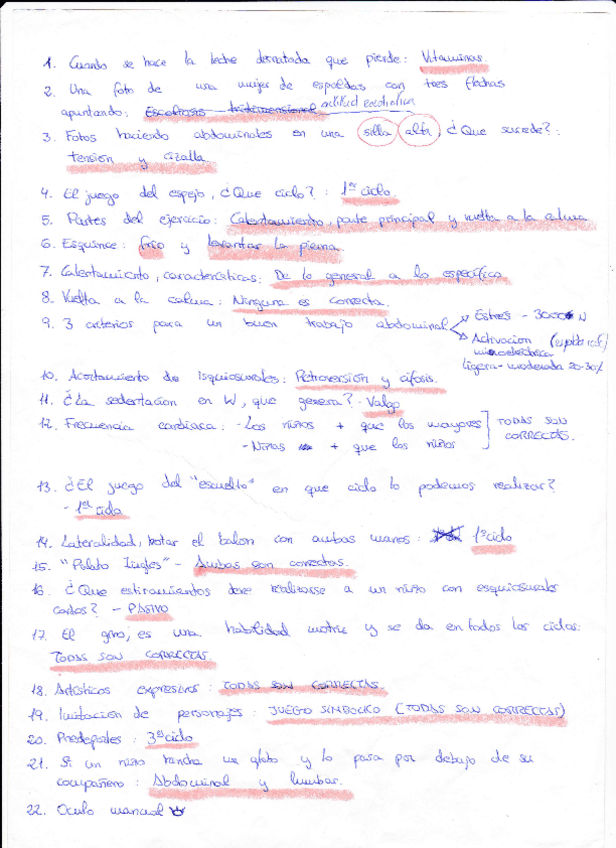 1. Cuando se hace la leche desnatada que pierde: Vitaminas.
2. Una foto de una mujer de espaldas con tres flechas
apuntando: Escoliosis tridimensional actitud escoliotica
3. Fotos haciendo abdominales en una silla alta, ¿Que sucede?:
tension y cizalla
4. El juego del espejo, ¿Que ciclo?: 1er ciclo.
5. Partes del ejercicio: Calentamiento, parte principal y vuelta a la calma
6. Esquince: frio y levantar la pierna.
7. Calentamiento, características: De lo general a lo específico
8. Vuelta a la calma: Ninguna es correcta.
9. 3 criterios para un buen trabajo abdominal
Estres - 3000 N
Activacion
mioelectrica
ligera-moderada 20-30%
10. Acortamiento de Isquiosurales: Retroversión y cifosis.
11. ¿La sedentacion en W, que genera? - Valgo
12. Frecuencia cardiaca: - Los niños + que los mayores
- Niñas + que los niños
TODAS SON
CORRECTAS.
13. ¿El juego del "escuelto" en que ciclo lo podemos realizar?
- 1er ciclo
14. Lateralidad, botar el balon con ambas manos: 1º ciclo
15. "Pollito Ingles" - Ambas son correctas.
16. ¿Que estiramientos debe realizarse a un niño con esquiosurales
cortos? - PASIVO
17. El giro, es una habilidad motriz y se da en todos los ciclos:
TODAS SON CORRECTAS
18. Artísticos expresivos: TODAS SON CORRECTAS.
19. Imitacion de personajes: JUEGO SIMBOLICO (TODAS SON CORRECTAS)
20. Predeportes: 3er ciclo
21. Si un niño hincha un globo y lo pasa por debajo de su
compañero: Abdominal y lumbar.
22. Oculo manual